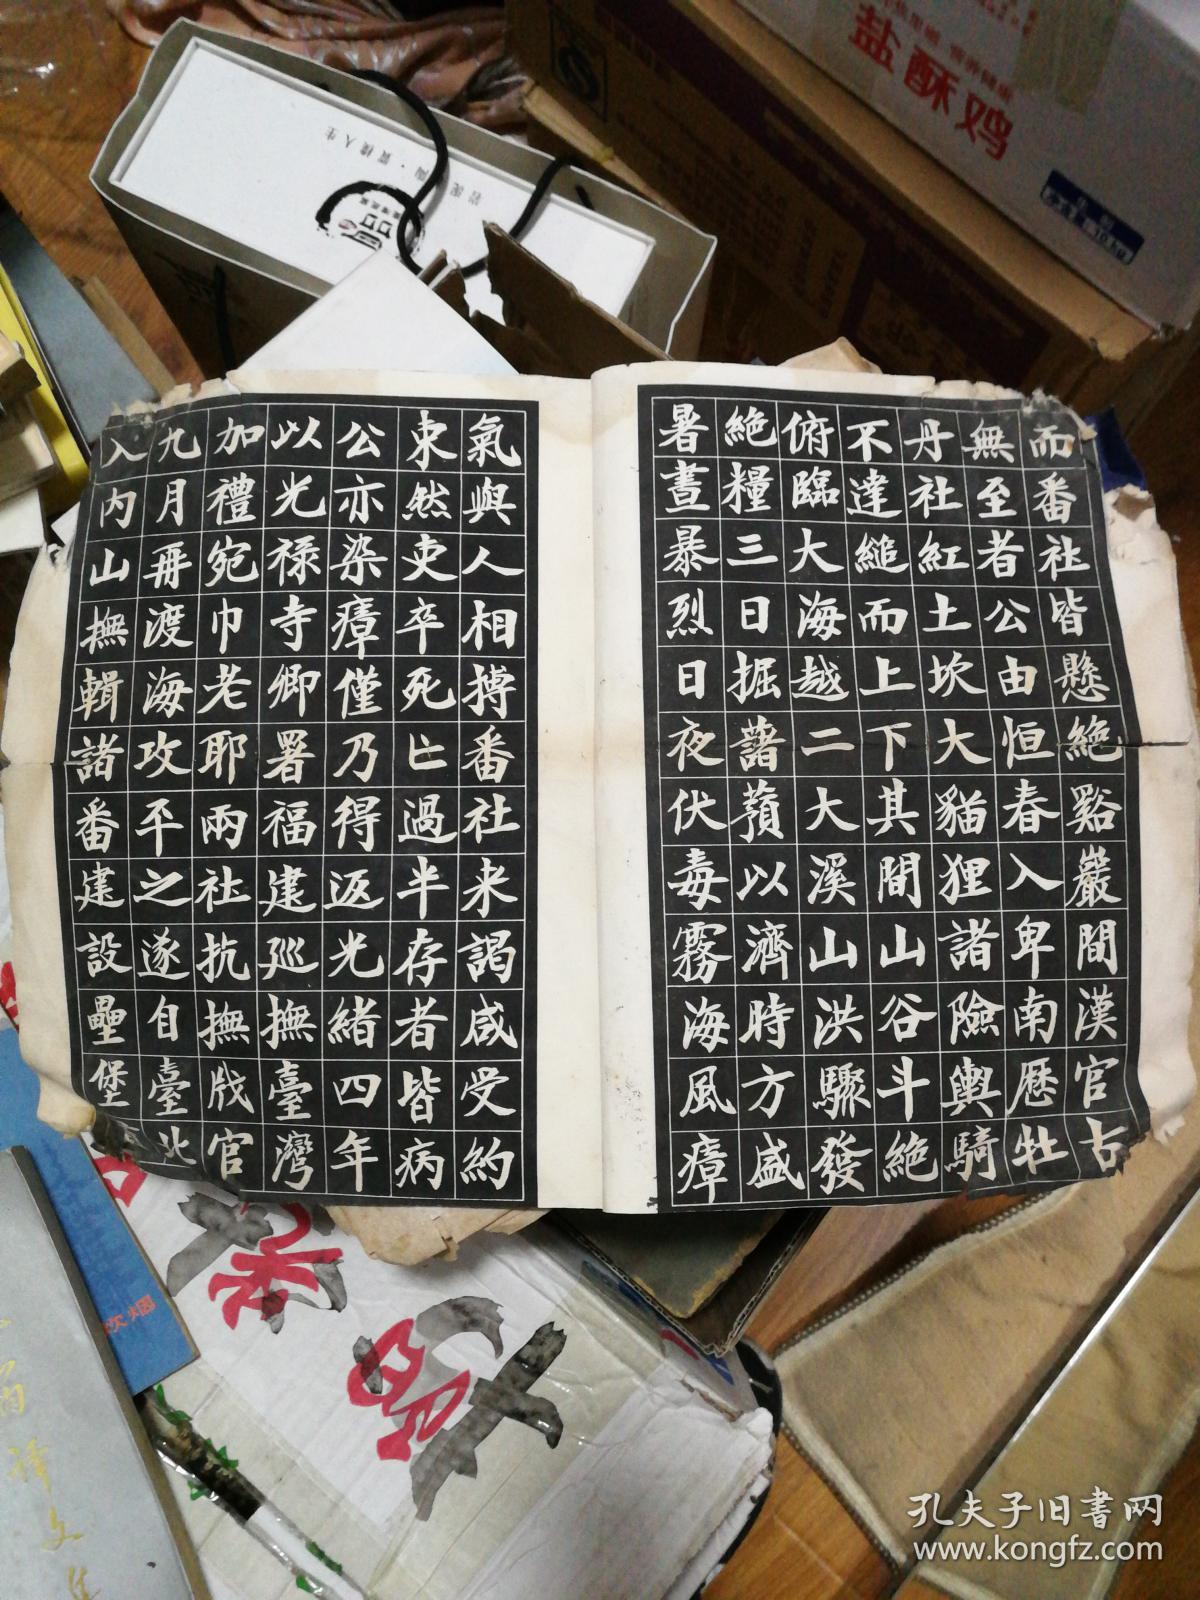 而番社皆懸絶谿巖間漢官古
無至者公由恒春入卑南歷牡
丹社紅土坎大貓狸諸險輿騎
不達縋而上下其間山谷斗絶
俯臨大海越二大溪山洪驟發
絶糧三日掘藷蕷以濟時方盛
暑晝暴烈日夜伏毒霧海風瘴
氣與人相搏番社来謁咸受約
束然吏卒死亡過半存者皆病
公亦染瘴僅乃得返光緒四年
以光祿寺卿署福建巡撫臺灣
加禮宛巾老耶兩社抗撫戕官
九月再渡海攻平之遂自臺北
入内山撫輯諸番建設壘堡
盐酥鸡
岩泥陶·實樸人生
孔夫子旧书网
www.kongfz.com